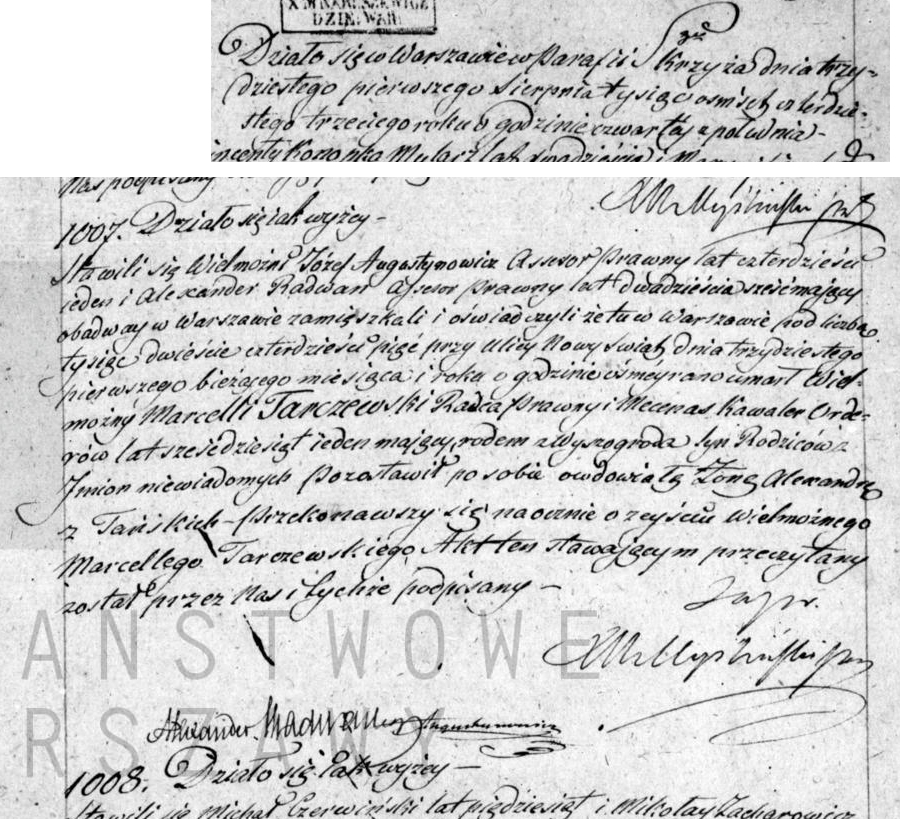 X M KARASZEWICZ
DZIE. WAR.
Działo się w Warszawie w Parafii S<sup>go</sup> Krzyża dnia trzy-
dziestego pierwszego Sierpnia tysiąc ośmset czterdzie-
stego trzeciego roku o godzinie czwartej z południa-
Konopka Mularz lat dwadzieścia i
Nas podpisany
1007. Działo się iak wyżey-
Stawili się Wielmożni Józef Augustynowicz Assesor Prawny lat czterdzieści
ieden i Alexander Radwan Assesor Prawny lat dwadzieścia sześć mający
obadway w Warszawie zamieszkali i oświadczyli że tu w Warszawie pod liczbą
tysiąc dwieście czterdzieści pięć przy ulicy Nowy Swiat dnia trzydziestego
pierwszego bieżącego miesiąca i roku o godzinie osmey rano umarł Wiel-
możny Marcelli Tarczewski Radca Prawny i Mecenas Kawaler Orde-
rów lat sześćdziesiąt ieden mający, rodem z Wyszogroda Syn Rodziców z
Jmion niewiadomych Pozostawił po sobie owdowiałą Żonę Alexandrę
z Tańskich - Przekonawszy się naocznie o zeyściu Wielmożnego
Marcellego Tarczewskiego, Akt ten stawającym przeczytany
został przez Nas i Tychże podpisany -
Alexander Radwan Augustynowicz
ANSTWOWE
RSZAWY
1008. Działo się iak wyżey -
Stawili się Michał Czerwiński lat pięćdziesiąt i Mikołay Zacharowicz